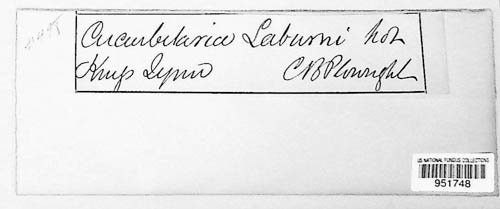 Cucurbitaria Laburni
Kings Lynn C B Plowright
US NATIONAL FUNGUS COLLECTIONS
951748